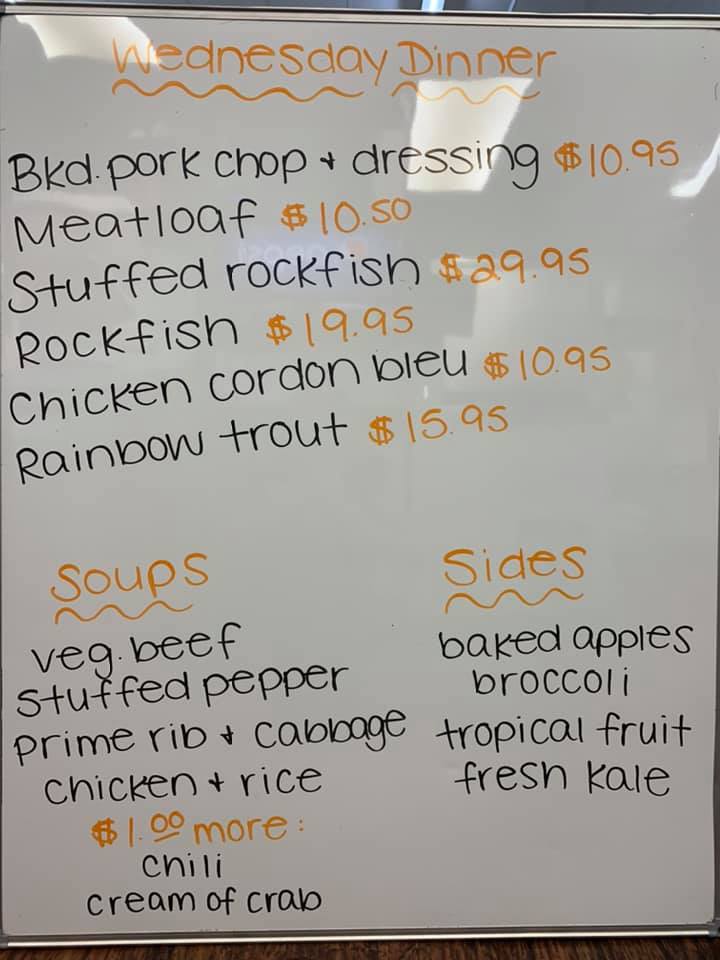 Wednesday Dinner
Bkd. pork chop + dressing $10.95
Meatloaf $10.50
Stuffed rockfish $29.95
Rockfish $19.95
Chicken cordon bleu $10.95
Rainbow trout $15.95
Soups
veg. beef
stuffed pepper
prime rib + cabbage
chicken + rice
$1.00 more:
chili
cream of crab
Sides
baked apples
broccoli
tropical fruit
fresh kale